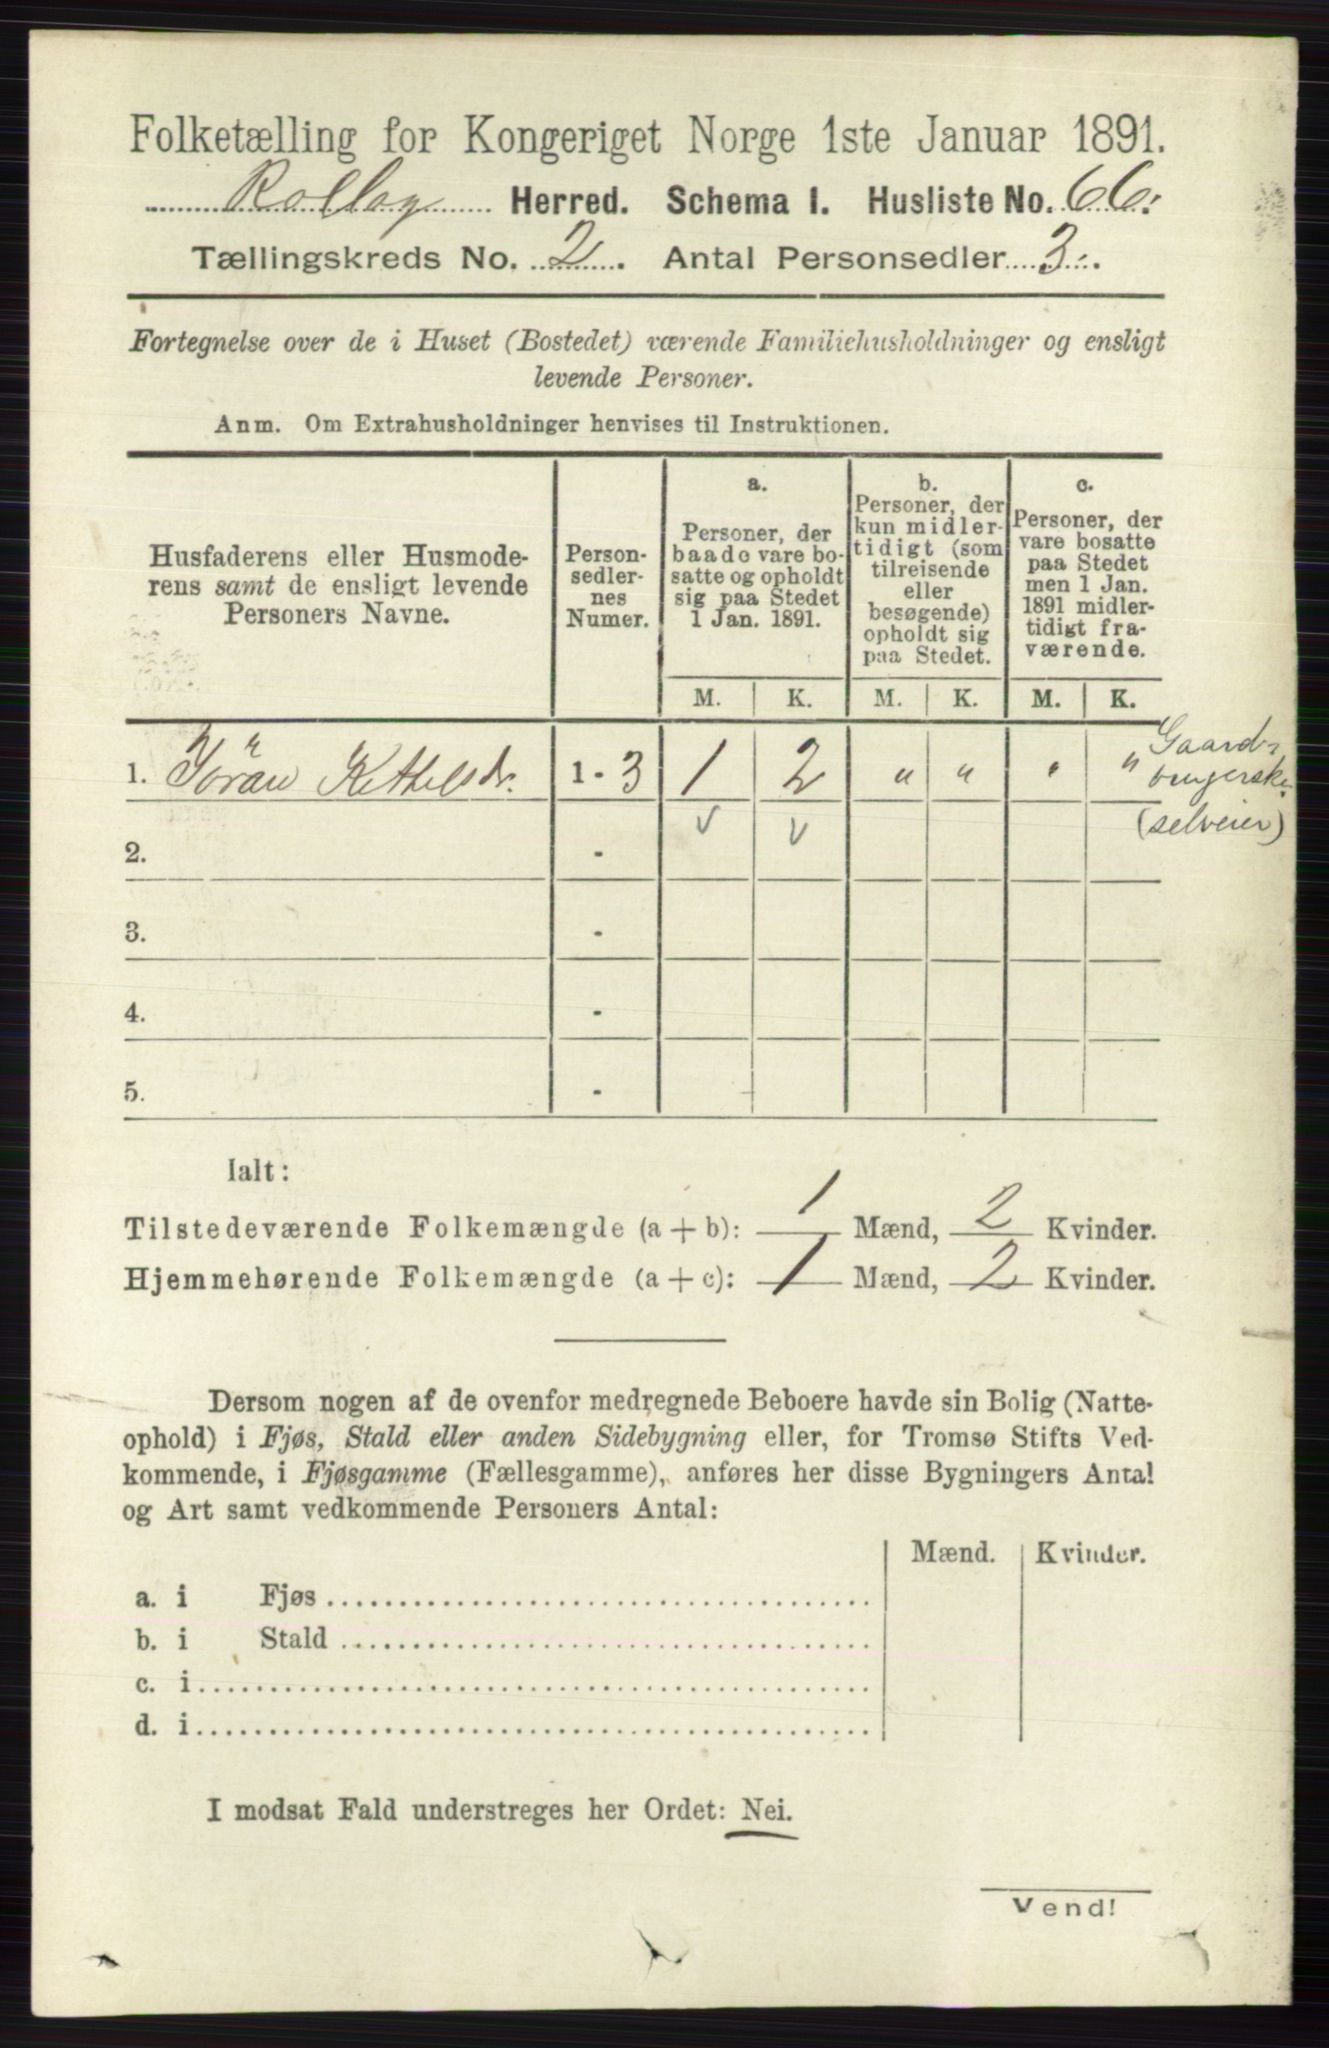 Folketælling for Kongeriget Norge 1ste Januar 1891.
Rollag Herred. Schema I. Husliste No. 66.
Tællingskreds No. 2. Antal Personsedler 3.
Fortegnelse over de i Huset (Bostedet) værende Familiehusholdninger og ensligt
levende Personer.
Anm. Om Extrahusholdninger henvises til Instruktionen.
Husfaderens eller Husmode-
rens samt de ensligt levende
Personers Navne.
Person-
sedler-
nes
Numer.
a.
Personer, der
baade vare bo-
satte og opholdt
sig paa Stedet
1 Jan. 1891.
b.
Personer, der
kun midler-
tidigt (som
tilreisende
eller
besøgende)
opholdt sig
paa Stedet.
c.
Personer, der
vare bosatte
paa Stedet
men 1 Jan.
1891 midler-
tidigt fra-
værende.
M. K. M. K. M. K.
1. Jöran Kethelsdr. 1 - 3 1 2 " " " " Gaard-
brugerske
(selveier)
2. -
3. -
4. -
5. -
Ialt:
Tilstedeværende Folkemængde (a + b): 1 Mænd, 2 Kvinder.
Hjemmehørende Folkemængde (a + c): 1 Mænd, 2 Kvinder.
Dersom nogen af de ovenfor medregnede Beboere havde sin Bolig (Natte-
ophold) i Fjøs, Stald eller anden Sidebygning eller, for Tromsø Stifts Ved-
kommende, i Fjøsgamme (Fællesgamme), anføres her disse Bygningers Antal
og Art samt vedkommende Personers Antal:
Mænd. Kvinder.
a. i Fjøs
b. i Stald
c. i
d. i
I modsat Fald understreges her Ordet: Nei.
Vend!